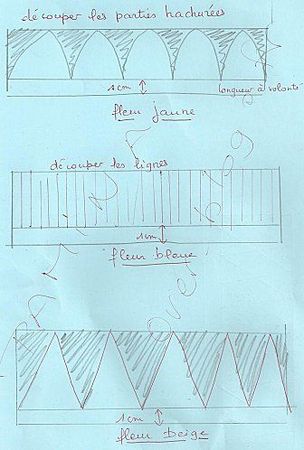 découper les parties hachurées
1cm
longueur à volonté
fleur jaune
découper les lignes
1cm
fleur blanche
1cm
fleur beige
over blog